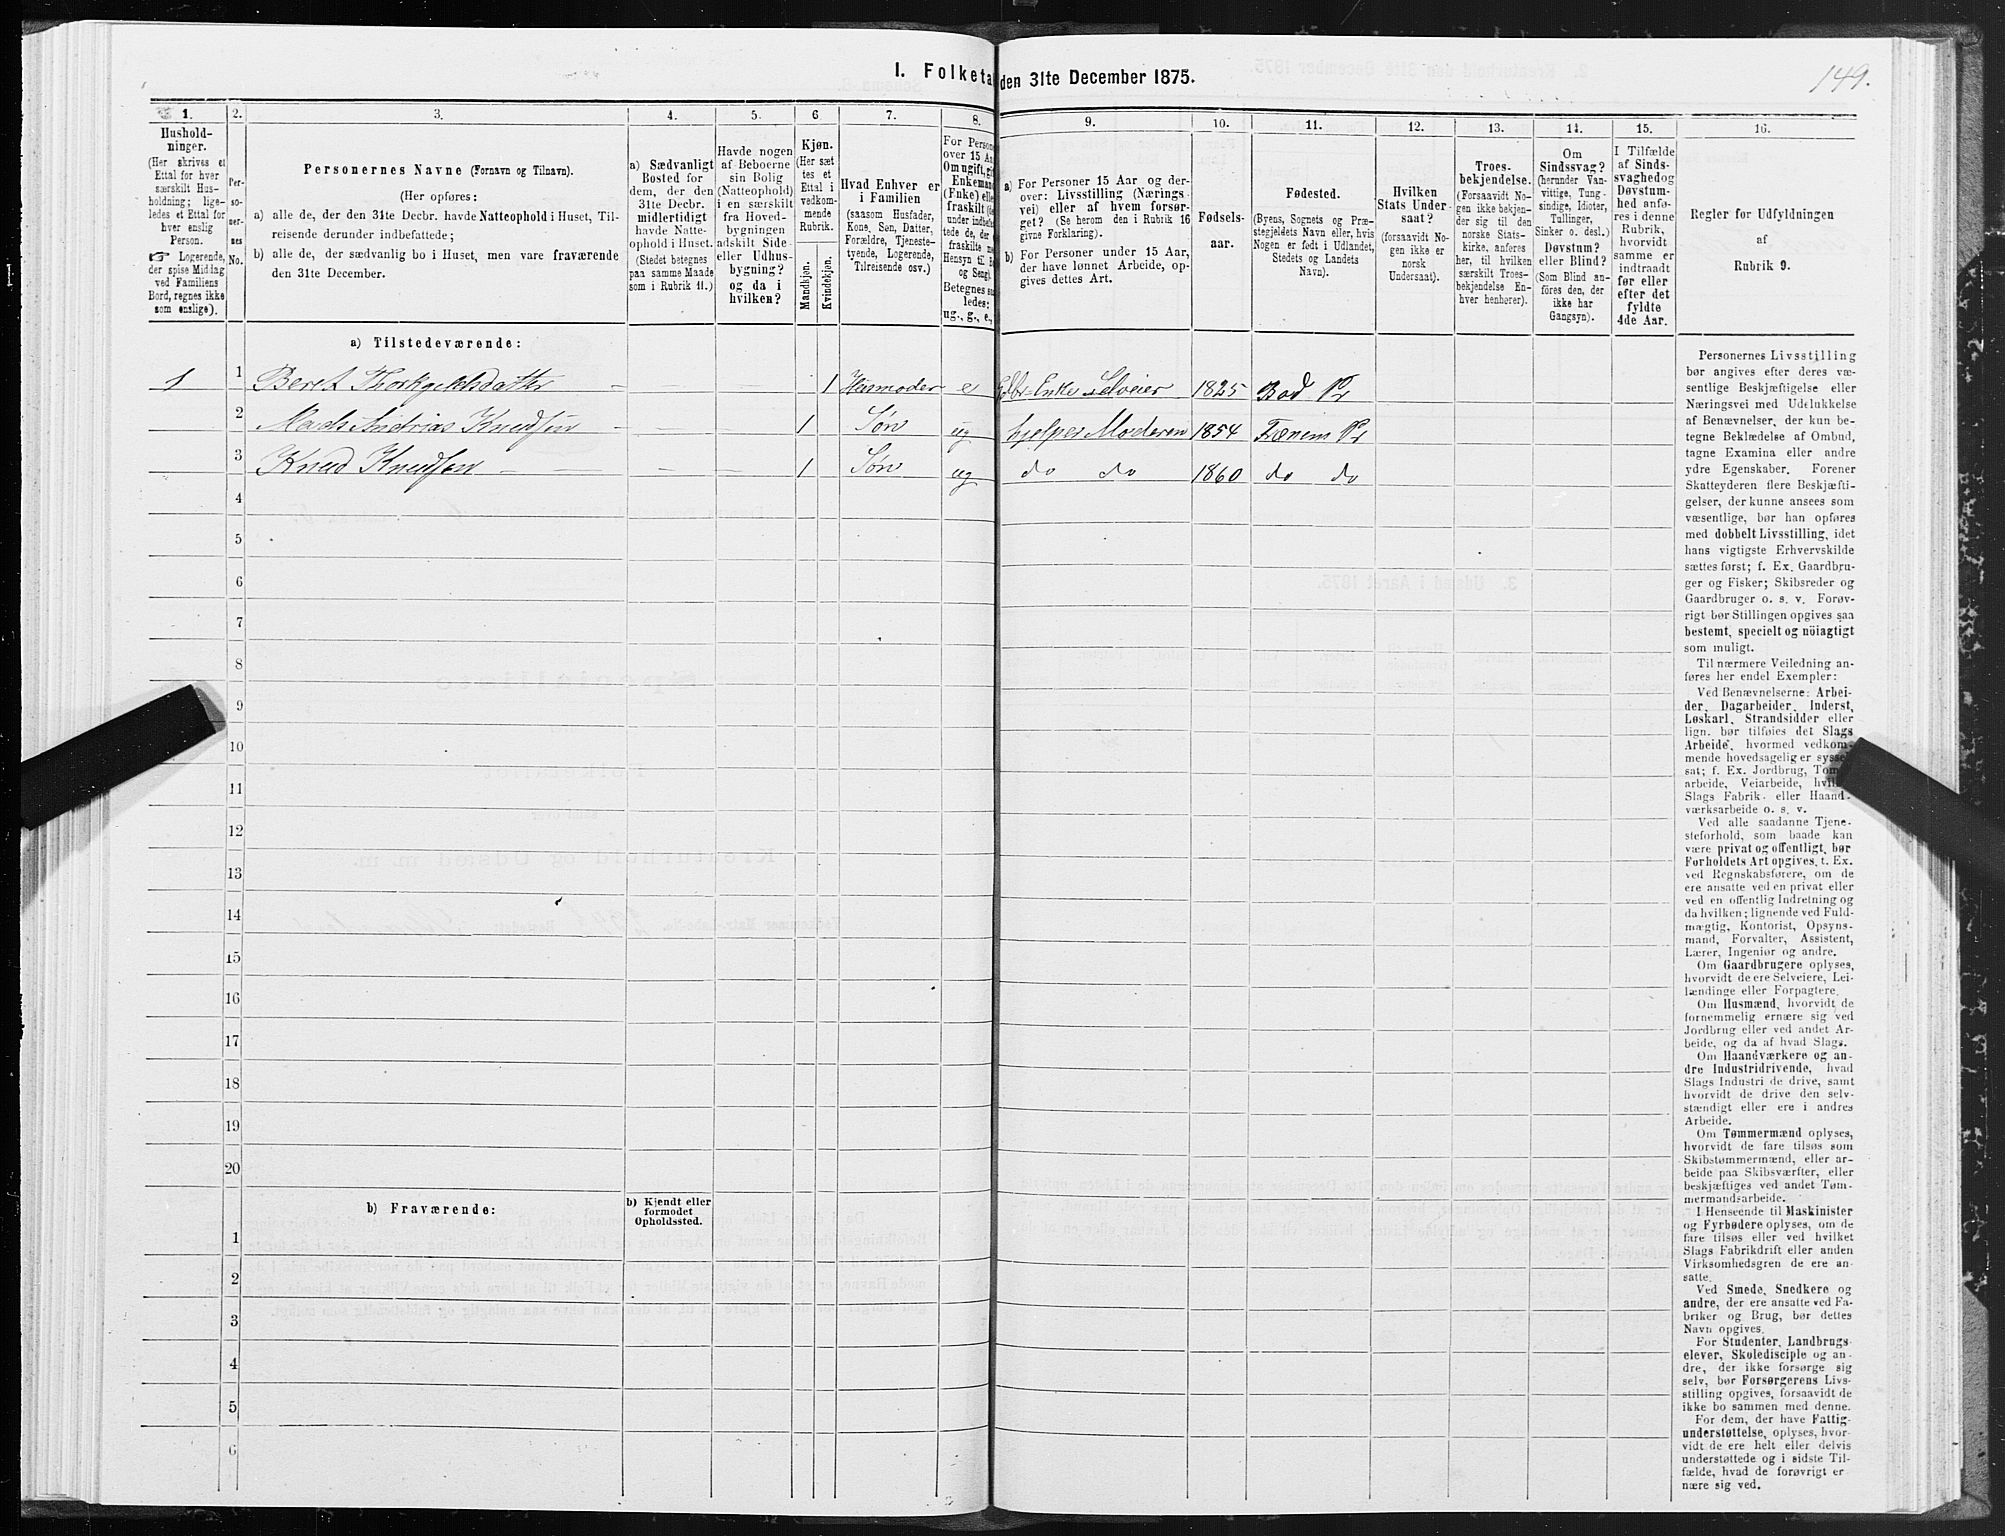 I. Folketa den 31te December 1875.
149.
1.
Hushold-
ninger.
(Her skrives et
Ettal for hver
særskilt Hus-
holdning; lige-
ledes et Ettal for
hver enslig
Person.
☞ Logerende,
der spise Middag
ved Familiens
Bord, regnes ikke
som enslige).
2.
Per-
so-
ner-
nes
No.
3.
Personernes Navne (Fornavn og Tilnavn).
(Her opføres:
a) alle de, der den 31te Decbr. havde Natteophold i Huset, Til-
reisende derunder indbefattede;
b) alle de, der sædvanlig bo i Huset, men vare fraværende
den 31te December.
4.
a) Sædvanligt
Bosted for
dem, der den
31te Decbr.
midlertidigt
havde Natte-
ophold i Huset.
(Stedet betegnes
paa samme Maade
som i Rubrik 11.)
5.
Havde nogen
af Beboerne
sin Bolig
(Natteophold)
i en særskilt
fra Hoved-
bygningen
adskilt Side-
eller Udhus-
bygning?
og da i
hvilken?
6.
Kjøn.
(Her sæt-
tes et
Ettal i
vedkom-
mende
Rubrik.
Mandkjøn.
Kvindekjøn.
7.
Hvad Enhver er
i Familien
(saasom Husfader,
Kone, Søn, Datter,
Forældre, Tjeneste-
tyende, Logerende,
Tilreisende osv.)
8.
For Person
over 15 Aa
Om ugift, gi
Enkeman
(Enke) elle
fraskilt (
under indbefa
tede de, der
fraskilte m
Hensyn til B
og Seng).
Betegnes sa
ledes:
ug., g., e.,
9.
a) For Personer 15 Aar og der-
over: Livsstilling (Nærings-
vei) eller af hvem forsør-
get? (Se herom den i Rubrik 16
givne Forklaring).
b) For Personer under 15 Aar,
der have lønnet Arbeide, op-
gives dettes Art.
10.
Fødsels-
aar.
11.
Fødested.
(Byens, Sognets og Præ-
stegjeldets Navn eller, hvis
Nogen er født i Udlandet,
Stedets og Landets
Navn).
12.
Hvilken
Stats Under-
saat?
(forsaavidt No-
gen ikke er
norsk
Undersaat).
13.
Troes-
bekjendelse.
(Forsaavidt No-
gen ikke bekjen-
der sig til den
norske Stats-
kirke, anføres
her, til hvilken
særskilt Troes-
bekjendelse En-
hver henhører).
14.
Om
Sindssvag?
(herunder Van-
vittige, Tung-
sindige, Idioter,
Tullinger,
Sinker o. desl.)
Døvstum?
eller Blind?
(Som Blind an-
føres den, der
ikke har
Gangsyn).
15.
I Tilfælde
af Sinds-
svaghed og
Døvstum-
hed anfø-
res i denne
Rubrik,
hvorvidt
samme er
indtraadt
før eller
efter det
fyldte
4de Aar.
16.
Regler for Udfyldningen
af
Rubrik 9.
a) Tilstedeværende:
1 1 Beret Thorkjeldsdatter - - - 1 Husmoder e Gdbr-Enke Selveier 1825 Bod Pr
2 Mads Andrias Knudsen - - 1 Søn ug hjelper Moderen 1854 Frænem Pr
3 Knud Knudsen - - - - 1 Søn ug do do 1860 do do
4
5
6
7
8
9
10
11
12
13
14
15
16
17
18
19
20
b) Fraværende:
b) Kjendt eller
formodet
Opholdssted.
1
2
3
4
5
6
Personernes Livsstilling
bør angives efter deres væ-
sentlige Beskjæftigelse eller
Næringsvei med Udelukkelse
af Benævnelser, der kun be-
tegne Beklædelse af Ombud,
tagne Examina eller andre
ydre Egenskaber. Forener
Skatteyderen flere Beskjæfti-
gelser, der kunne ansees som
væsentlige, bør han opføres
med dobbelt Livsstilling, idet
hans vigtigste Erhvervskilde
sættes først; f. Ex. Gaardbru-
ger og Fisker; Skibsreder og
Gaardbruger o. s. v. Forøv-
rigt bør Stillingen opgives saa
bestemt, specielt og nöiagtigt
som muligt.
Til nærmere Veiledning an-
føres her endel Exempler:
Ved Benævnelserne: Arbei-
der, Dagarbeider, Inderst,
Løskarl, Strandsidder eller
lign. bør tilføies det Slags
Arbeide, hvormed vedkom-
mende hovedsagelig er syssel
sat; f. Ex. Jordbrug, Tom
arbeide, Veiarbeide, hvil
Slags Fabrik- eller Haand-
værksarbeide o. s. v.
Ved alle saadanne Tjene-
steforhold, som baade kan
være privat og offentligt, bør
Forholdets Art opgives, t. Ex.
ved Regnskabsførere, om de
ere ansatte ved en privat eller
ved en offentlig Indretning og
da hvilken; lignende ved Fuld-
mægtig, Kontorist, Opsyns-
mand, Forvalter, Assistent,
Lærer, Ingeniør og andre.
Om Gaardbrugere oplyses,
hvorvidt de ere Selveiere, Lei-
lændinge eller Forpagtere.
Om Husmænd, hvorvidt de
fornemmelig ernære sig ved
Jordbrug eller ved andet Ar-
beide, og da af hvad Slags.
Om Haandværkere og an-
dre Industridrivende, hvad
Slags Industri de drive, samt
hvorvidt de drive den selv-
stændigt eller ere i andres
Arbeide.
Om Tømmermænd oplyses,
hvorvidt de fare tilsøs som
Skibstømmermænd, eller ar-
beide paa Skibsværfter, eller
beskjæftiges ved andet Tøm-
mermandsarbeide.
I Henseende til Maskinister
og Fyrbødere oplyses, om de
fare tilsøs eller ved hvilket
Slags Fabrikdrift eller anden
Virksomhedsgren de ere an-
satte.
Ved Smede, Snedkere og
andre, der ere ansatte ved Fa-
briker og Brug, bør dettes
Navn opgives.
For Studenter, Landbrugs-
elever, Skoledisciple og an-
dre, der ikke forsørge sig
selv, bør Forsørgerens Livs-
stilling opgives, forsaavidt de
ikke bo sammen med denne.
For dem, der have Fattig-
understøttelse, oplyses, hvor-
vidt de ere helt eller delvis
understøttede og i sidste Til-
fælde, hvad de forøvrigt er
nære sig ved.